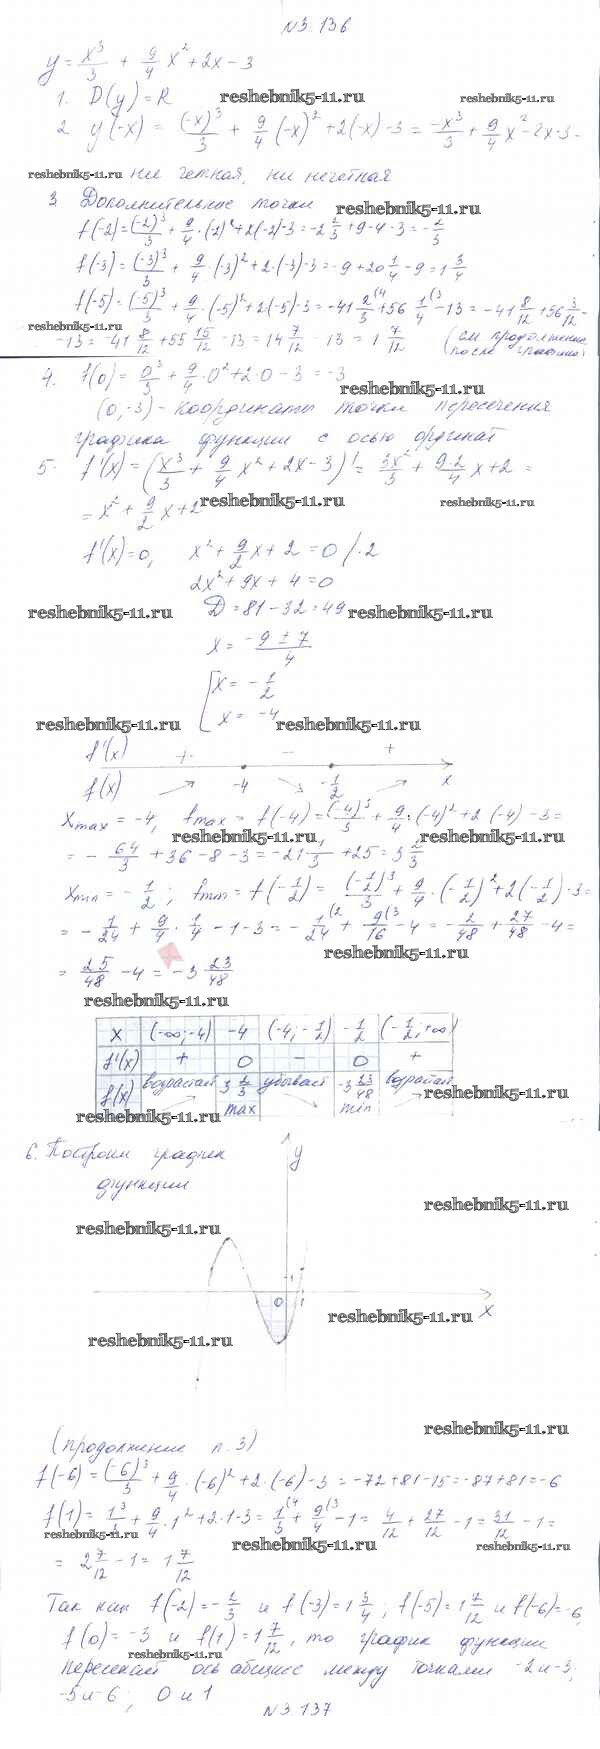 №3.136
y = x³/3 + 9/4 x² + 2x - 3
1. D(y) = R
reshebnik5-11.ru
reshebnik5-11.ru
2. y(-x) = (-x)³/3 + 9/4 (-x)² + 2(-x) - 3 = -x³/3 + 9/4 x² - 2x - 3 -
reshebnik5-11.ru
ни четная, ни нечетная
3. Дополнительные точки
reshebnik5-11.ru
f(-2) = (-2)³/3 + 9/4 · (-2)² + 2(-2) - 3 = -2 2/3 + 9 - 4 - 3 = -2/3
f(-3) = (-3)³/3 + 9/4 · (-3)² + 2·(-3) - 3 = -9 + 20 1/4 - 9 = 1 3/4
f(-5) = (-5)³/3 + 9/4 · (-5)² + 2(-5) - 3 = -41 2/3 (4 + 56 1/4 (3 - 13 = -41 8/12 + 56 3/12 -
reshebnik5-11.ru
-13 = -41 8/12 + 55 15/12 - 13 = 14 7/12 - 13 = 1 7/12 (см продолжение
после графика)
4. f(0) = 0³/3 + 9/4 · 0² + 2·0 - 3 = -3
reshebnik5-11.ru
(0;-3) - координаты точки пересечения
графика функции с осью ординат
5. f'(x) = (x³/3 + 9/4 x² + 2x - 3)' = 3x²/3 + 9·2/4 x + 2 =
reshebnik5-11.ru
reshebnik5-11.ru
= x² + 9/2 x + 2
f'(x) = 0, x² + 9/2 x + 2 = 0 /·2
2x² + 9x + 4 = 0
reshebnik5-11.ru
D = 81 - 32 = 49
reshebnik5-11.ru
x = -9 ± 7/4
x = -1/2
x = -4
reshebnik5-11.ru
reshebnik5-11.ru
f'(x) + - +
f(x) -4 -1/2 x
xmax = -4, fmax = f(-4) = (-4)³/3 + 9/4 · (-4)² + 2·(-4) - 3 =
reshebnik5-11.ru
reshebnik5-11.ru
= - 64/3 + 36 - 8 - 3 = -21 1/3 + 25 = 3 2/3
xmin = -1/2; fmin = f(-1/2) = (-1/2)³/3 + 9/4 · (-1/2)² + 2(-1/2) - 3 =
= -1/24 + 9/4 · 1/4 - 1 - 3 = -1/24 (2 + 9/16 (3 - 4 = -2/48 + 27/48 - 4 =
reshebnik5-11.ru
= 25/48 - 4 = -3 23/48
reshebnik5-11.ru
x (-∞;-4) -4 (-4;-1/2) -1/2 (-1/2;+∞)
f'(x) + 0 - 0 +
f(x) возрастает 3 2/3 убывает -3 23/48 возрастает
max min
reshebnik5-11.ru
reshebnik5-11.ru
6. Построим график
функции
y
reshebnik5-11.ru
reshebnik5-11.ru
1
0 1
x
reshebnik5-11.ru
reshebnik5-11.ru
reshebnik5-11.ru
(продолжение п.3)
f(-6) = (-6)³/3 + 9/4 · (-6)² + 2·(-6) - 3 = -72 + 81 - 15 = -87 + 81 = -6
f(1) = 1³/3 + 9/4 · 1² + 2·1 - 3 = 1/3 (4 + 9/4 (3 - 1 = 4/12 + 27/12 - 1 = 31/12 - 1 =
reshebnik5-11.ru
reshebnik5-11.ru
reshebnik5-11.ru
= 2 7/12 - 1 = 1 7/12
Так как f(-2) = -2/3 и f(-3) = 1 3/4; f(-5) = 1 7/12 и f(-6) = -6,
f(0) = -3 и f(1) = 1 7/12, то график функции
reshebnik5-11.ru
пересекает ось абсцисс между точками -2 и -3;
-5 и -6; 0 и 1
№3.137